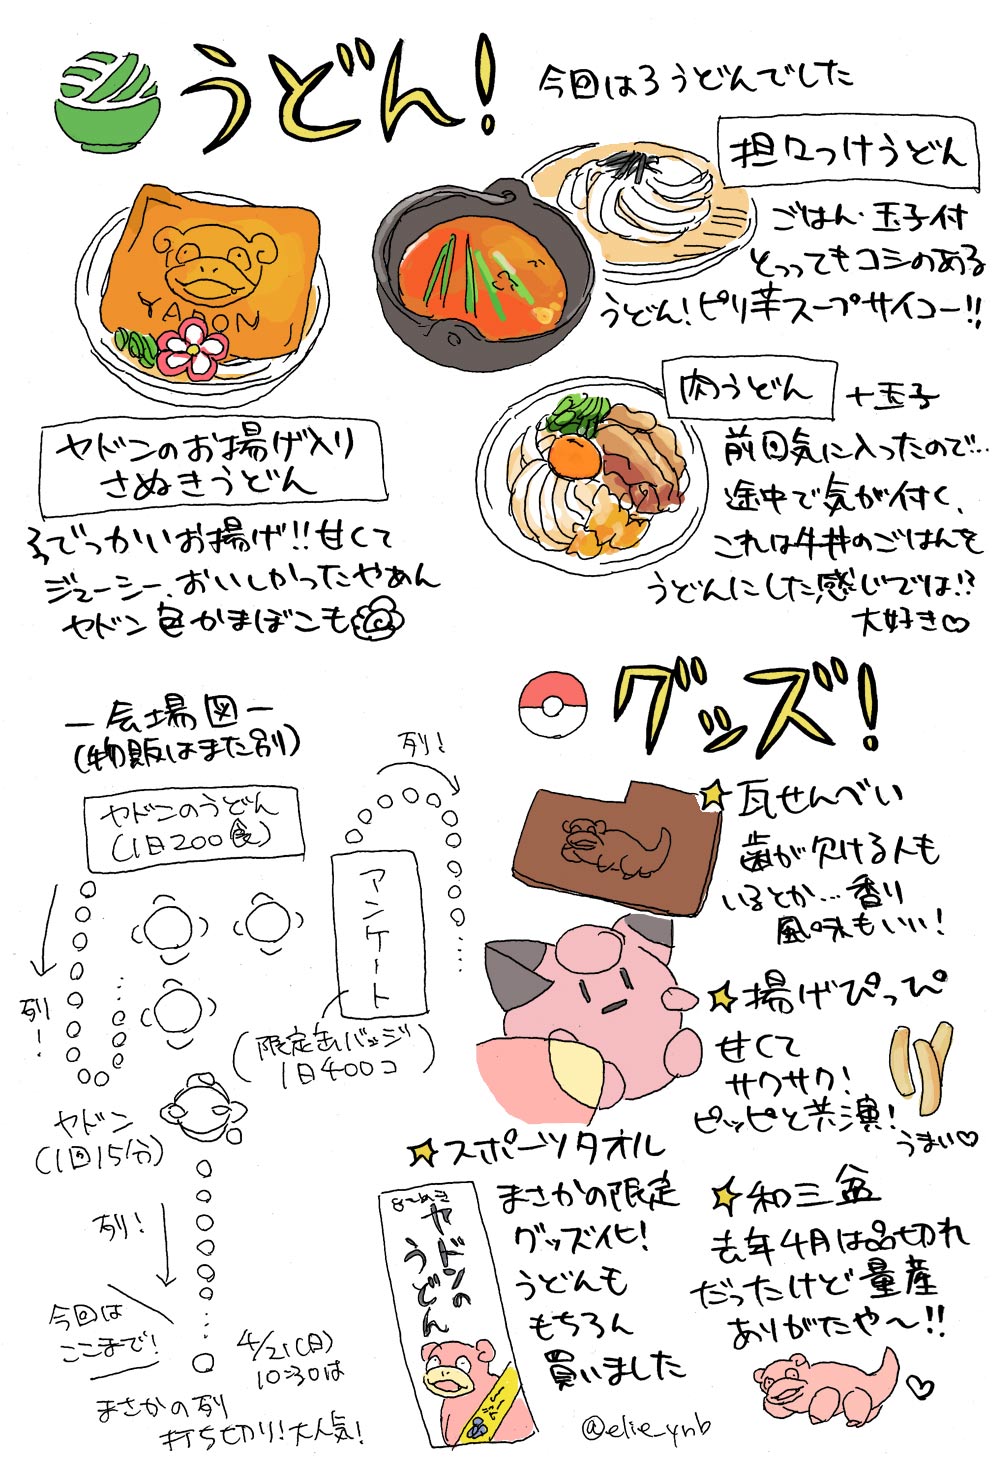 うどん!
今回は3うどんでした
担々つけうどん
ごはん・玉子付
とってもコシのある
うどん!ピリ辛スープサイコー!!
YADON
ヤドンのお揚げ入り
さぬきうどん
でっかいお揚げ!!甘くて
ジューシー、おいしかったやぁん
ヤドン色かまぼこも
肉うどん
+玉子
前回気に入ったので…
途中で気が付く、
これは牛丼のごはんを
うどんにした感じでは!?
大好き♡
ー会場図ー
(物販はまた別)
ヤドンのうどん
(1日200食)
列!
アンケート
(限定缶バッジ
1日400コ)
列!
ヤドン
(1回15分)
列!
今回は
ここまで!
4/21(日)
10:30は
まさかの列
打ち切り!大人気!
グッズ!
★瓦せんべい
歯が欠ける人も
いるとか…香り
風味もいい!
★揚げぴっぴ
甘くて
サクサク!
ピッピと共演!
うまい♡
★スポーツタオル
まさかの限定
グッズ化!
うどんも
もちろん
買いました
さぬき
ヤドンの
うどん
★和三盆
去年4月は品切れ
だったけど量産
ありがたや〜!!
♡
@elie_ynb